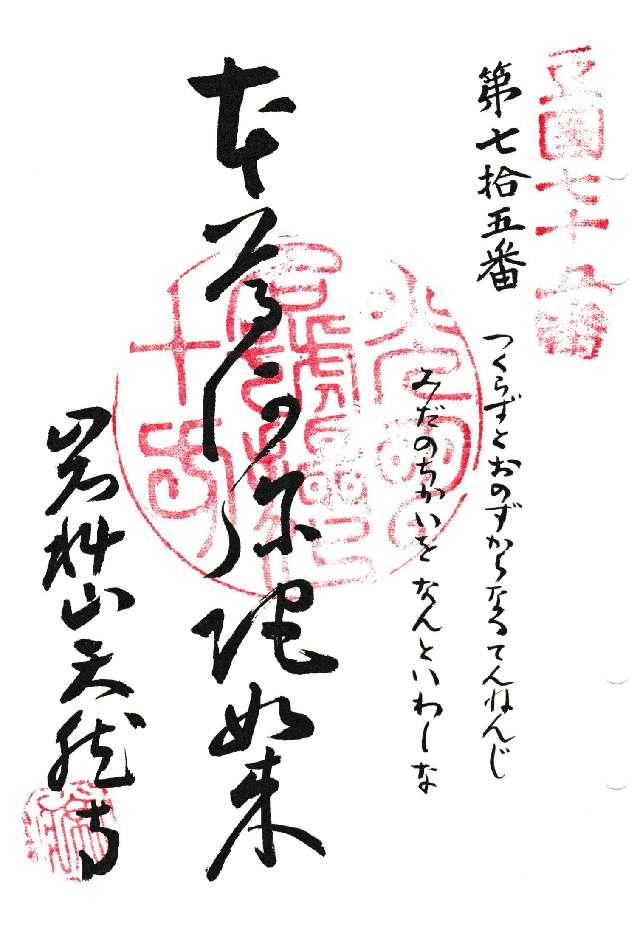 豆國七十五番
第七拾五番
つくらずと おのずからなる てんねんじ
みだのちかいを なんといわしな
本尊阿弥陀如来
岩科山天然寺